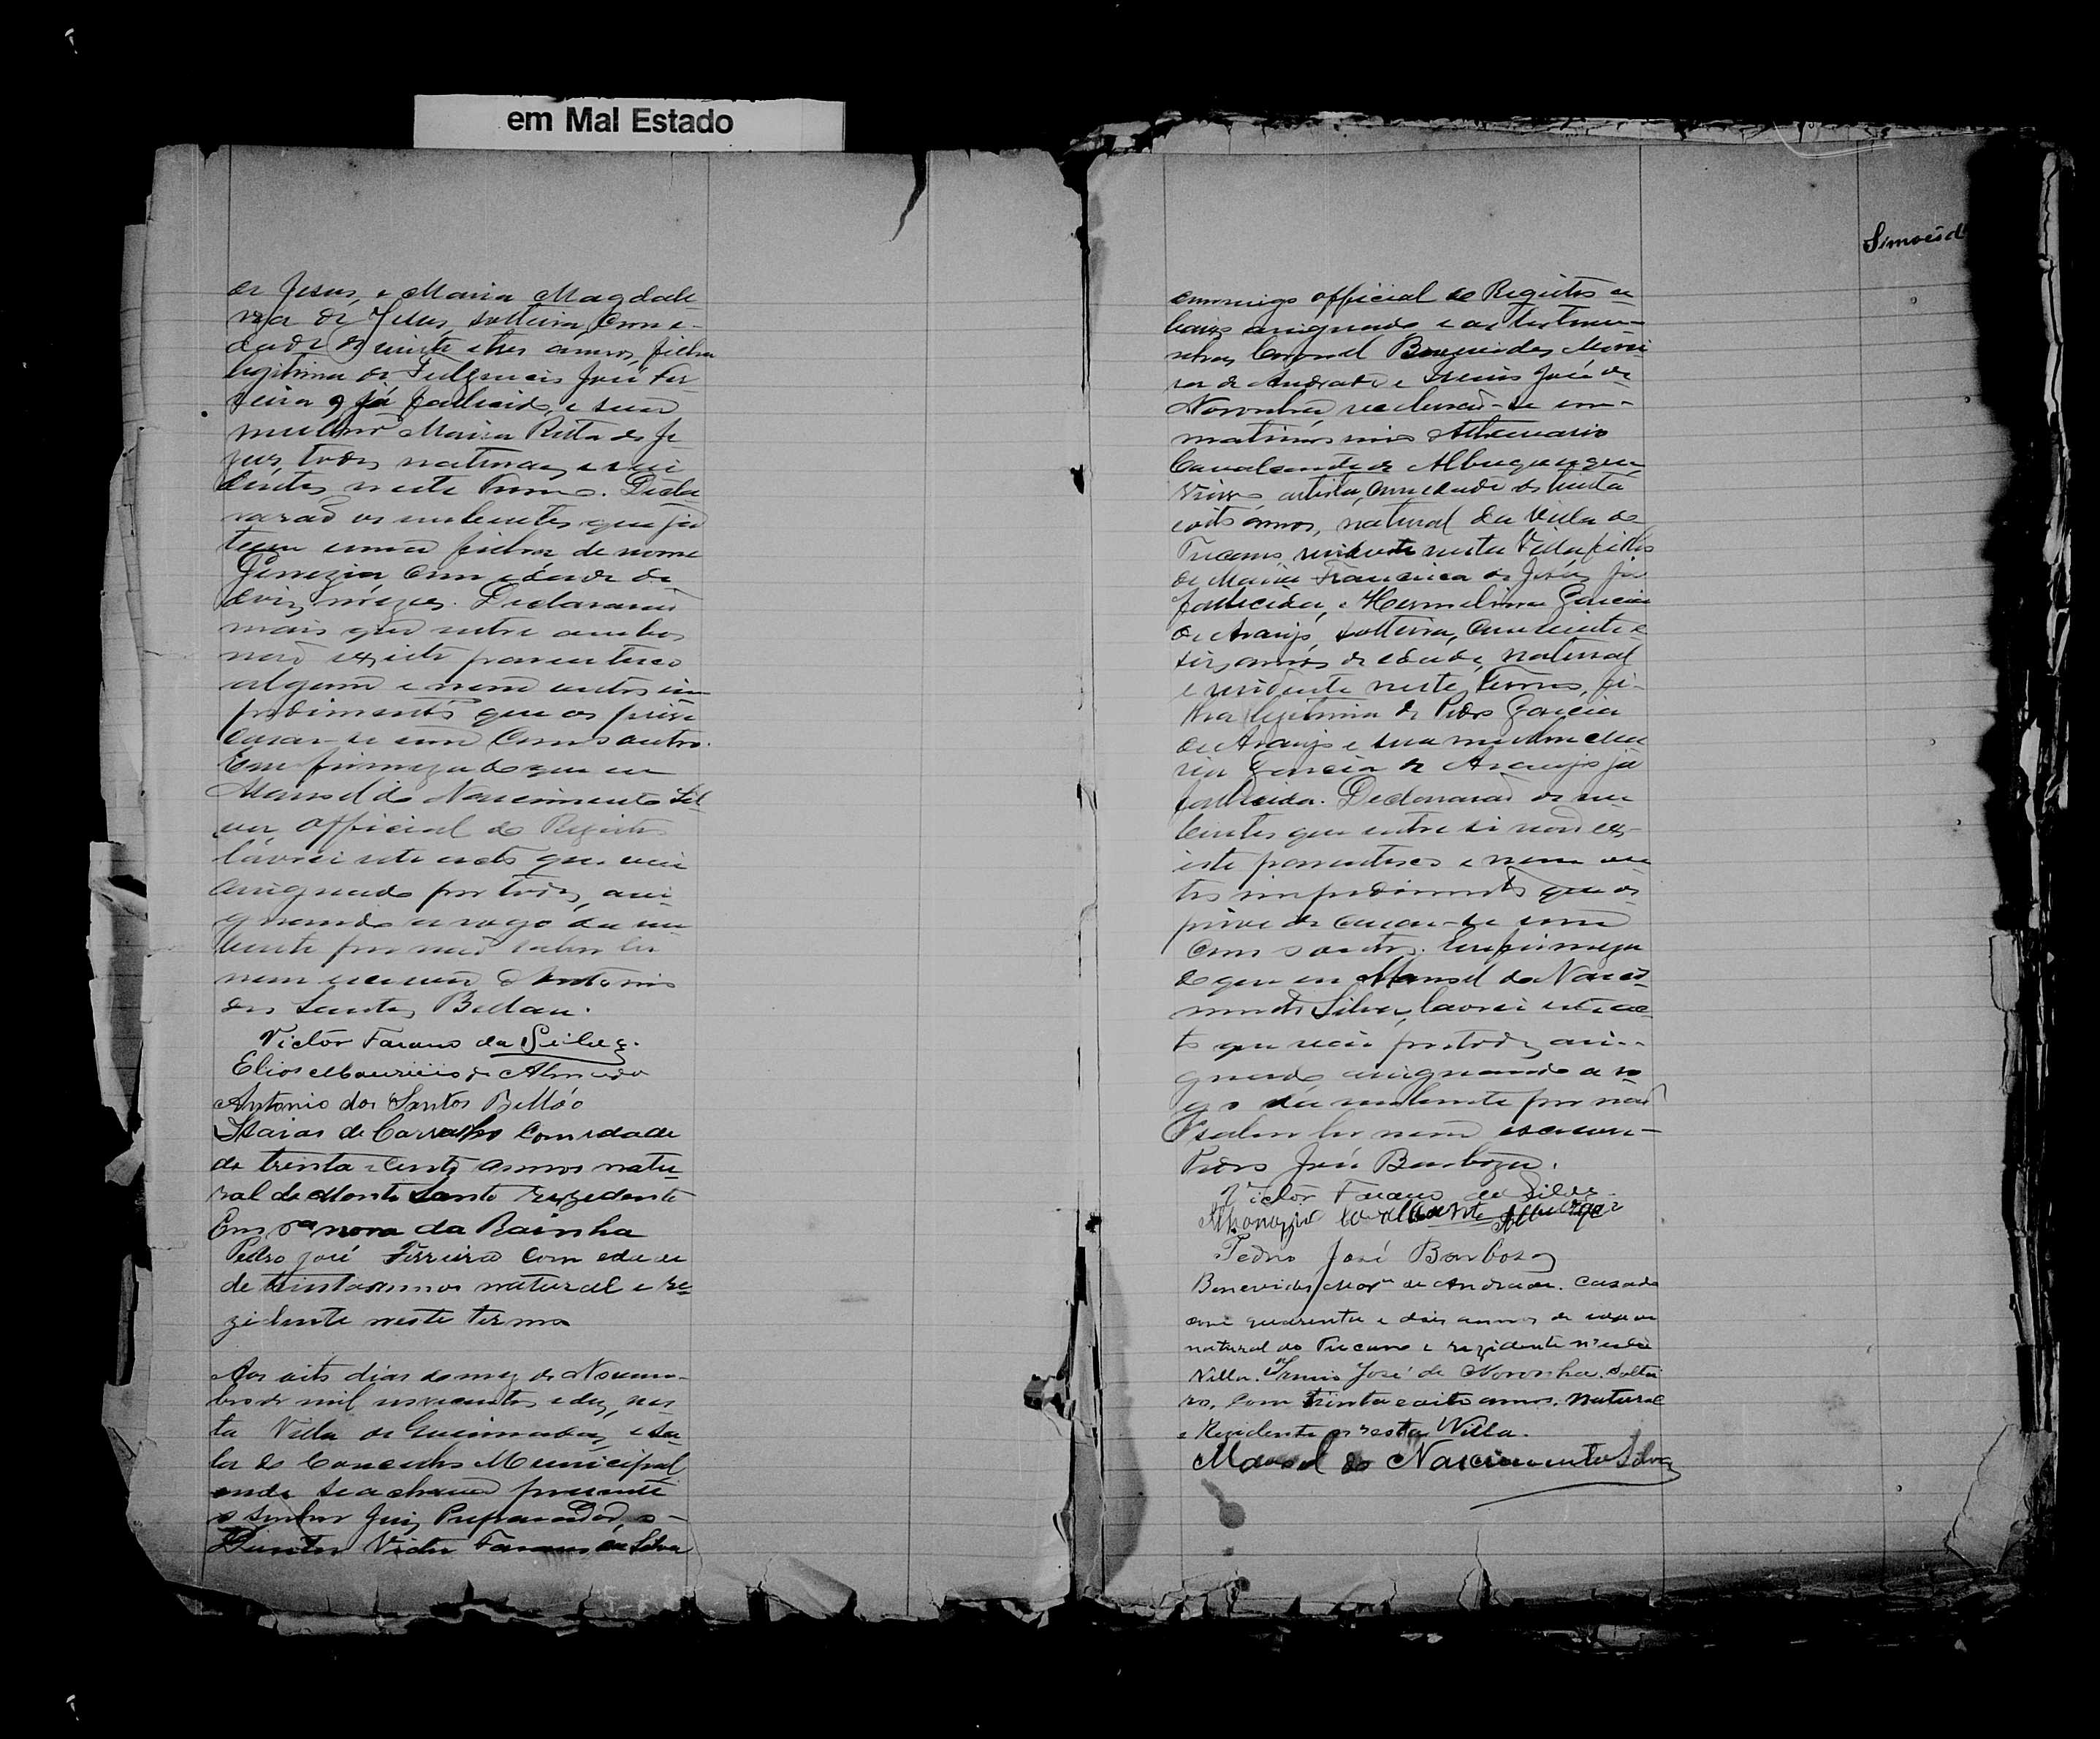 em Mal Estado
de Jesus, e Maria Magdale
na de Jesus, solteira, com e-
dade de vinte e tres annos, filha
legitima de Fulgencio José Fer
reira já fallecido, e sua
mulher Maria Ritta de Je
sus, todos naturaes e resi
dentes neste Termo. Decla
rarão os nubentes que já
teem uma filha de nome
com edade de
mezes. Declararão
mais que entre ambos
não existe parentesco
algum e nem outro im
pedimento que os prive
casar-se um com o outro.
Em firmeza do que eu
Manoel do Nascimento Sil
va, Official do Registro
lavrei este acto que vai
assignado por todos, assi
gnando a rogo da nu
bente por não saber ler
nem escrever Antonio
dos Santos Bellau.
Victor Farano da Silva.
Elios Mauricio de Almeida
Antonio dos Santos Bellão
Isaias de Carvalho com edade
de trinta e cinco annos natu
ral de Monte Santo rezedente
Em nova da Rainha
Pedro José Ferreira com edade
de trinta annos natural e re
zidente neste termo
Aos oito dias do mez de Novem-
bro de mil novecentos e dez, nes
ta Villa de Queimadas, e sa-
la do Concelho Municipal
onde se achava presente
o senhor Juiz Preparador, o
Doutor Victor Farano da Silva
Simões d
commigo official do Registro a-
baixo assignado e as testemu-
nhas, Coronel Benevides Morei
ra de Andrade e José de
Noronha, receberão-se em-
matrimonio Athanazio
Cavalcante de Albuquerque
Viuvo, artista, com edade de trinta
e oito annos, natural da Villa de
Tucano, residente nesta Villa, filho
de Maria Francisca de Jesus já
fallecida, e Hermelina Garcia
de Araujo, solteira, com vinte e
seis annos de edade, natural
e residente neste termo, fi-
lha legitima de Pedro Garcia
de Araujo e sua mulher Ma
ria Garcia de Araujo já
fallecida. Declararão os nu-
bentes que entre si não ex-
iste parentesco e nem ou
tro impedimento que os
prive de casar-se um
com o outro. Em firmeza
do que eu Manoel do Nasci-
mento Silva, lavrei este ac-
to que vai por todos assi-
gnado assignando a ro-
go da nubente por não
saber ler nem escrever-
Pedro José Barboza.
Victor Farano da Silva
Athanazio Cavalcante Albuquerque
Pedro José Barboza
Benevides Morª de Andrade. Casado
com quarenta e dois annos de edade
natural do Tucano e rezidente nesta
Villa. José de Noronha. Soltei
ro, com trinta e oito annos. Natural
e Rezidente nesta Villa.
Manoel do Nascimento Silva